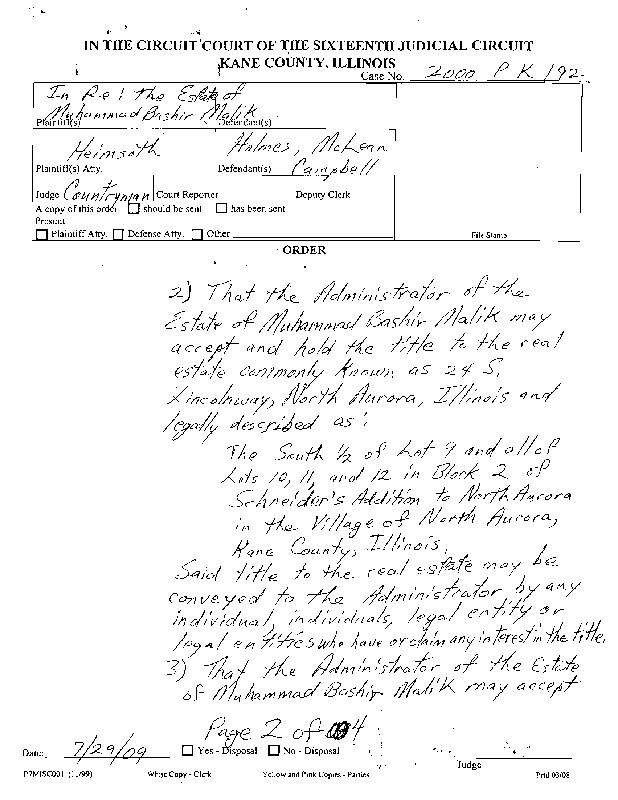 IN THE CIRCUIT COURT OF THE SIXTEENTH JUDICIAL CIRCUIT
KANE COUNTY, ILLINOIS
Case No. 2000 P K 192
In Re: The Estate of
Muhammad Bashir Malik
Plaintiff(s) Defendant(s)
Heimsoth Holmes, McLean
Plaintiff(s) Atty. Defendant(s) Campbell
Judge Countryman Court Reporter Deputy Clerk
A copy of this order should be sent has been sent
Present
Plaintiff Atty. Defense Atty. Other File Stamp
ORDER
2) That the Administrator of the
Estate of Muhammad Bashir Malik may
accept and hold the title to the real
estate commonly known as 24 S.
Lincolnway, North Aurora, Illinois and
legally described as:
The South 1/2 of Lot 9 and all of
Lots 10, 11, and 12 in Block 2 of
Schneider's Addition to North Aurora
in the Village of North Aurora,
Kane County, Illinois.
Said title to the real estate may be
conveyed to the Administrator by any
individual, individuals, legal entity or
legal entities who have or claim any interest in the title.
3) That the Administrator of the Estate
of Muhammad Bashir Malik may accept
Page 2 of 4
Date: 7/29/09 Yes - Disposal No - Disposal
Judge
P7-MISC001 (11/99) White Copy - Clerk Yellow and Pink Copies - Parties Prtd 03/08